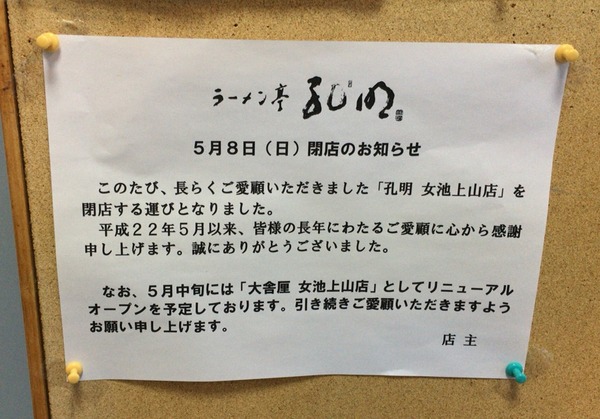 ラーメン亭 孔明
5月8日（日）閉店のお知らせ
このたび、長らくご愛顧いただきました「孔明 女池上山店」を
閉店する運びとなりました。
平成22年5月以来、皆様の長年にわたるご愛顧に心から感謝
申し上げます。誠にありがとうございました。
なお、5月中旬には「大舎厘 女池上山店」としてリニューアル
オープンを予定しております。引き続きご愛顧いただきますよう
お願い申し上げます。
店 主